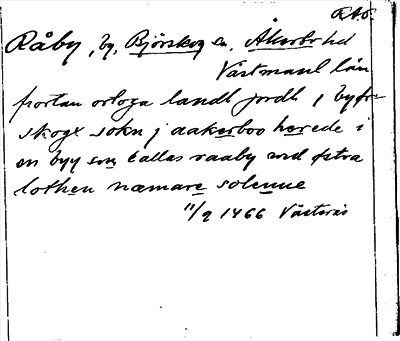 RAO.
Råby, by, Björskog sn, Åkerbo hd
Västmanl län
fortan ortoga landh jordh j byör-
skogx sokn j aakerboo herede i
en byy som callas raaby med østra
lothen næmare solenne
11/9 1466 Västerås